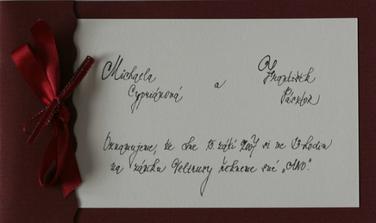 Michaela a František
Cypriánová Pásztor
Oznamujeme, že dne 15. září 2007 si ve 13 hodin
na zámku Veltrusy řekneme své „ANO".